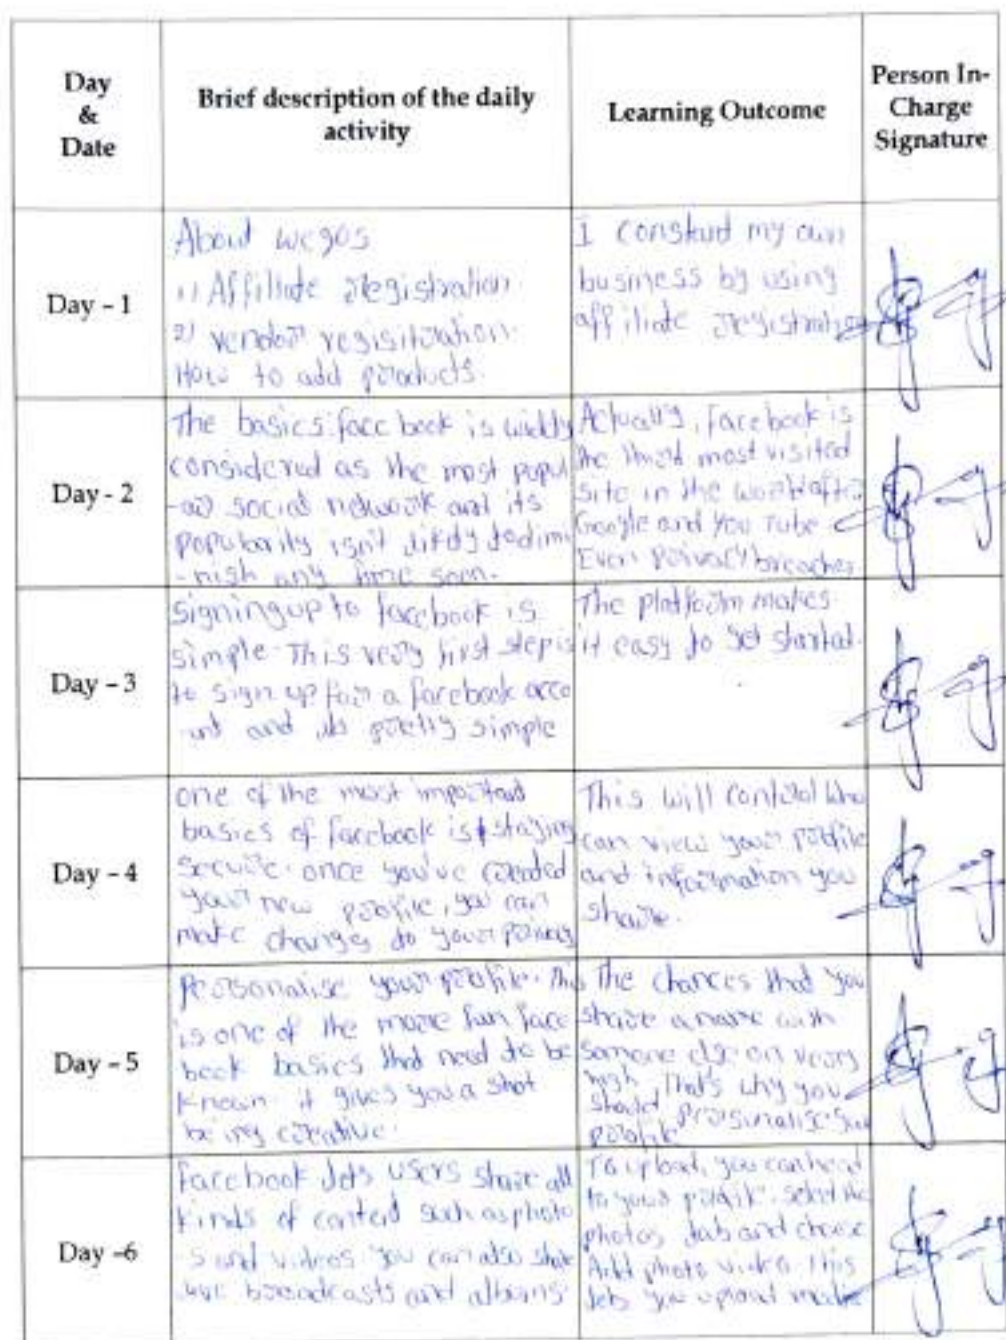 Day
&
Date
Brief description of the daily
activity
Learning Outcome
Person In-
Charge
Signature
Day - 1
About wegos
1) Affiliate Registration.
2) vendor regisitration.
How to add products.
I my own
business by using
affiliate registration
Day - 2
The basics: face book is widely
considered as the most popul
-ar social network and its
popularity isn't likely to dimi
-nish any time soon.
Actually, facebook is
the third most visited
site in the world after
Google and You Tube
Even privacy breaches
Day - 3
signing up to facebook is
simple. This very first step is
to sign up for a facebook acco
-unt and its pretty simple
The platform makes
it easy to get started.
Day - 4
one of the most important
basics of facebook is staying
secure. once you've created
your new profile, you can
make changes to your privacy
This will control who
can view your profile
and information you
share.
Day - 5
Personalise your profile. This
is one of the more fun face
book basics that need to be
known. it gives you a shot
being creative.
The chances that you
share a name with
someone else on very
high. That's why you
should personalise your
profile
Day -6
Facebook lets users share all
kinds of content such as photo
s and videos. you can also share
live broadcasts and albums.
To upload, you can head
to your profile. select the
photos tab and choose
Add photo video. this
lets you upload media